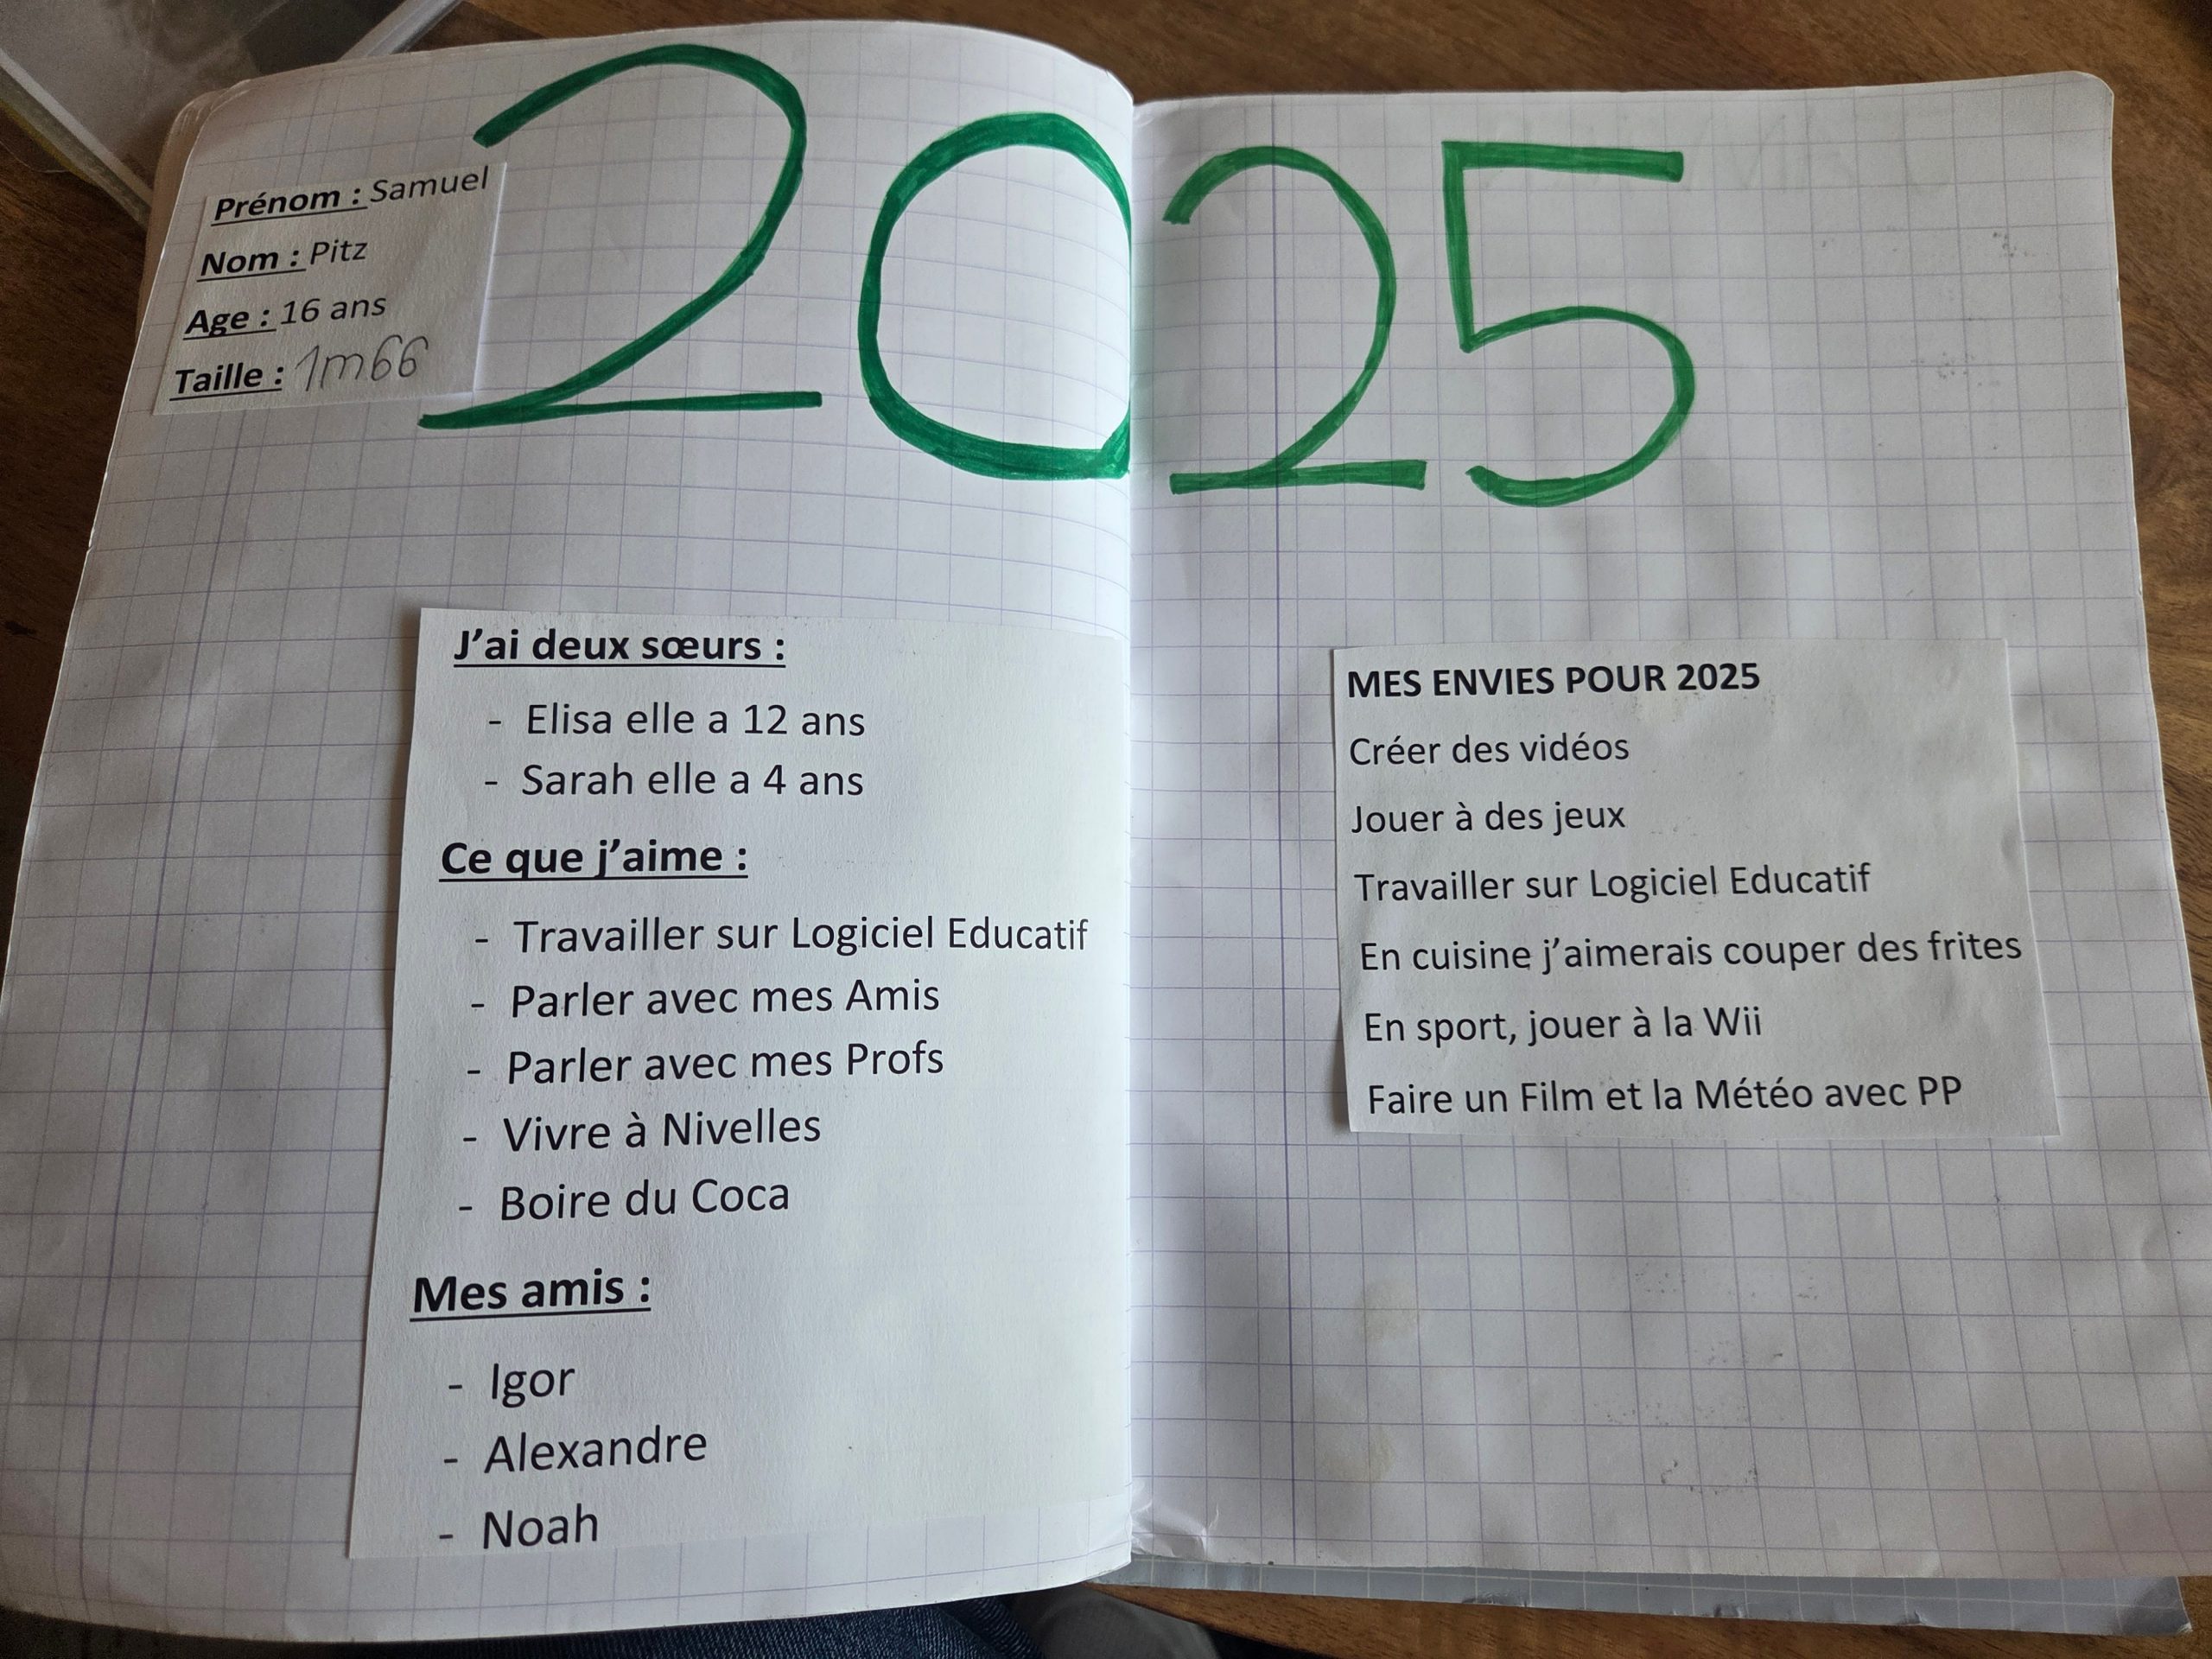 2025
Prénom : Samuel
Nom : Pitz
Age : 16 ans
Taille : 1m66
J'ai deux sœurs :
- Elisa elle a 12 ans
- Sarah elle a 4 ans
Ce que j'aime :
- Travailler sur Logiciel Educatif
- Parler avec mes Amis
- Parler avec mes Profs
- Vivre à Nivelles
- Boire du Coca
Mes amis :
- Igor
- Alexandre
- Noah
MES ENVIES POUR 2025
Créer des vidéos
Jouer à des jeux
Travailler sur Logiciel Educatif
En cuisine j'aimerais couper des frites
En sport, jouer à la Wii
Faire un Film et la Météo avec PP